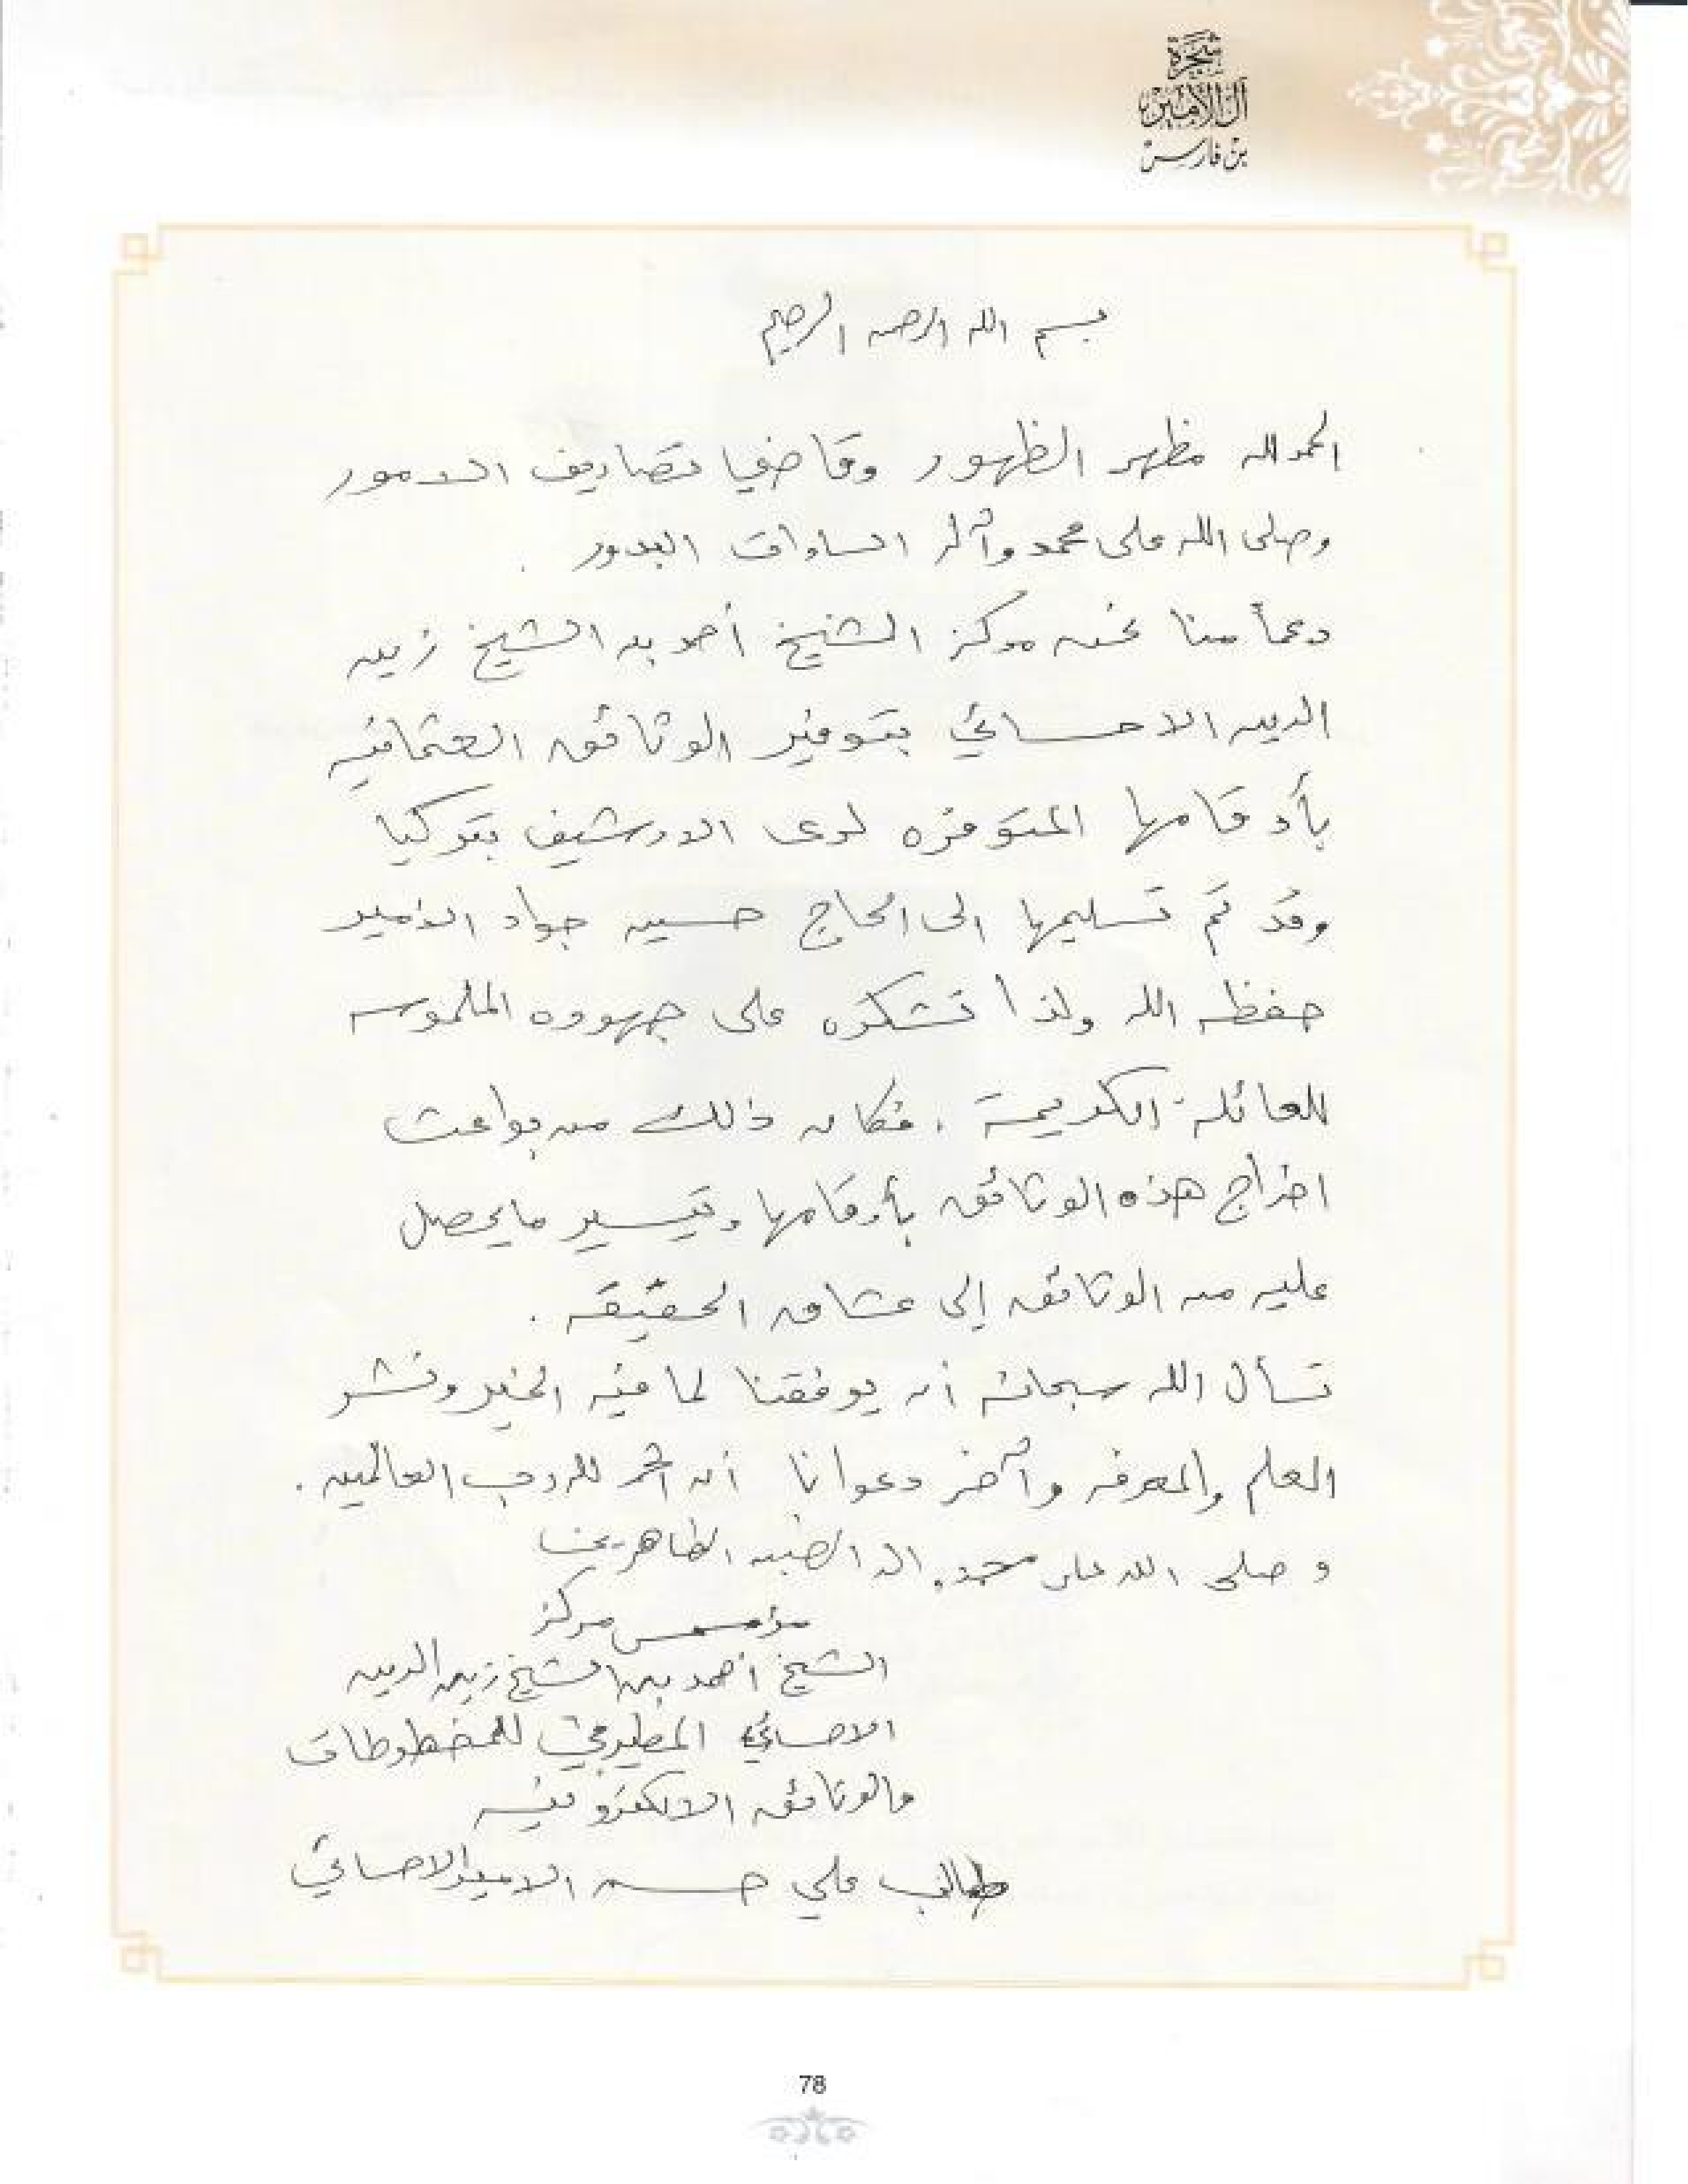 شجرة
آل الأمير
بن فارس
بسم الله الرحمن الرحيم
الحمد لله مظهر الظهور وقاضيا تصاريف الامور
وصلى الله على محمد وآله السادات البدور .
دعماً منا نحن مركز الشيخ أحمد بن الشيخ زين
الدين الاحسائي بتوفير الوثائق العثمانيه
بأرقامها المتوفره لدى الارشيف بتركيا
وقد تم تسليمها الى الحاج حسين جواد الأمير
حفظه الله ولذا نشكره على جهوده الملموسه
للعائلة الكريمة ، فكان ذلك من بواعث
اخراج هذه الوثائق بأرقامها وتيسير ما يحصل
عليه من الوثائق إلى عشاق الحقيقه .
نسأل الله سبحانه أن يوفقنا لما فيه الخير ونشر
العلم والمعرفه وآخر دعوانا أن الحمد لله رب العالمين .
و صلى الله على محمد و اله الطاهرين
مؤسس مركز
الشيخ أحمد بن الشيخ زين الدين
الاحسائي المطيرفي للمخطوطات
والوثائق الالكترونيه
طالب علي حسن الامير الاحسائي
78